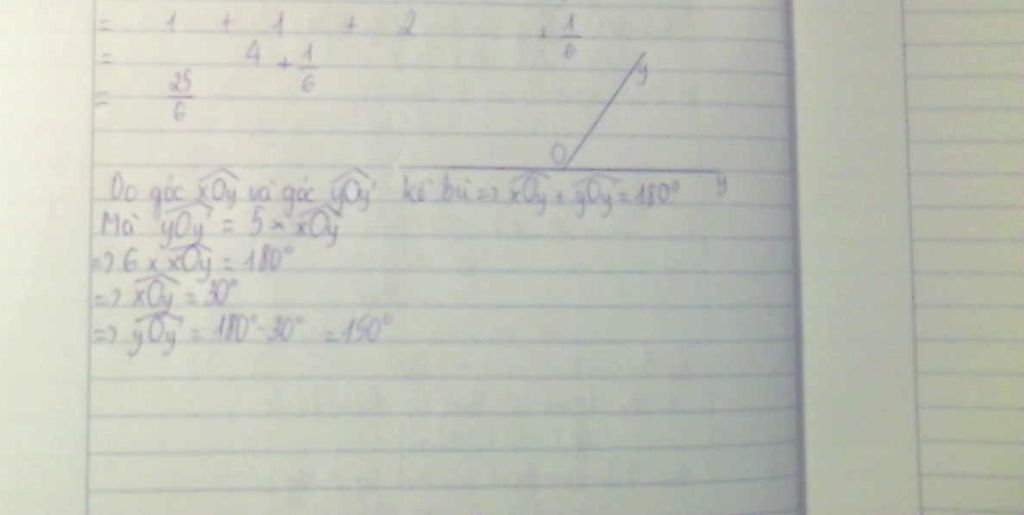 = 1 + 1 + 2 + 1/6
= 4 + 1/6
= 25/6
y
O
y
Do góc xOy và góc yOy' kề bù => xOy + yOy' = 180°
Mà yOy' = 5 × xOy
=> 6 × xOy = 180°
=> xOy = 30°
=> yOy' = 180° - 30° = 150°